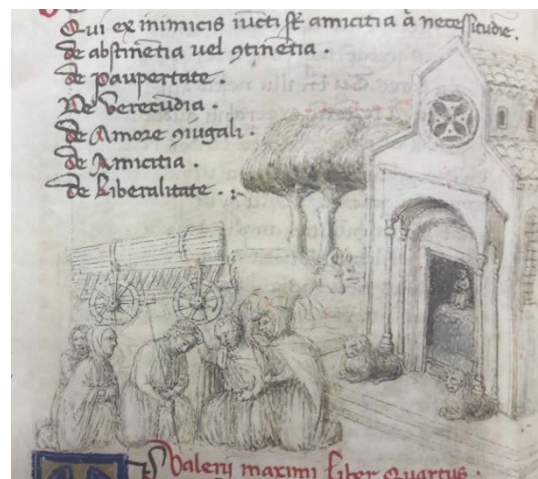 Qui ex inimicis iũcti st̃ amicitia a necessitudie.
de abstinẽtia uel ꝯtinẽtia .
de paupertate .
De Verecũdia .
de Amore ꝯiugali .
de Amicitia .
de liberalitate .
Valerij maximi liber quartus .